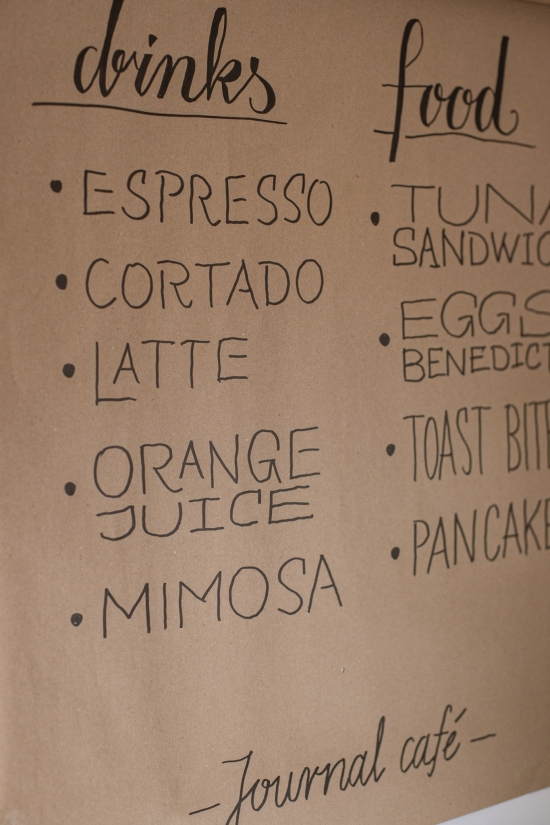 drinks
• ESPRESSO
• CORTADO
• LATTE
• ORANGE
JUICE
• MIMOSA
food
• TUNA
SANDWIC
• EGGS
BENEDICT
• TOAST BITE
• PANCAKE
- Journal café -